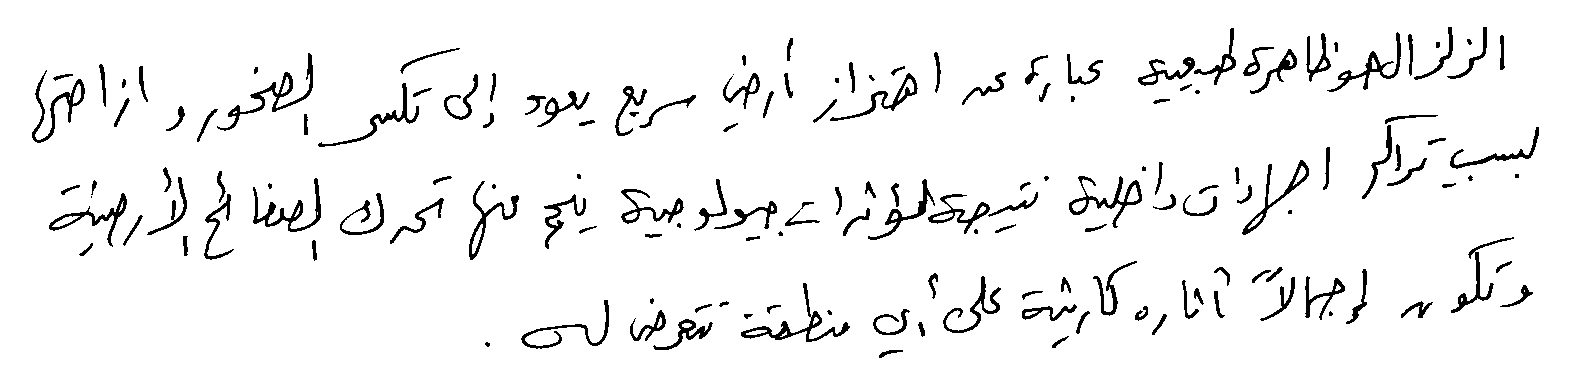 الزلزال هو ظاهرة طبيعية عبارة عن اهتزاز أرضي سريع يعود إلى تكسر الصخور و ازاحتها
بسبب تراكم اجهادات داخلية نتيجة لمؤثرات جيولوجية ينجم عنها تحرك الصفائح الأرضية
وتكون إجمالاً آثاره كارثية على أي منطقة تتعرض له .